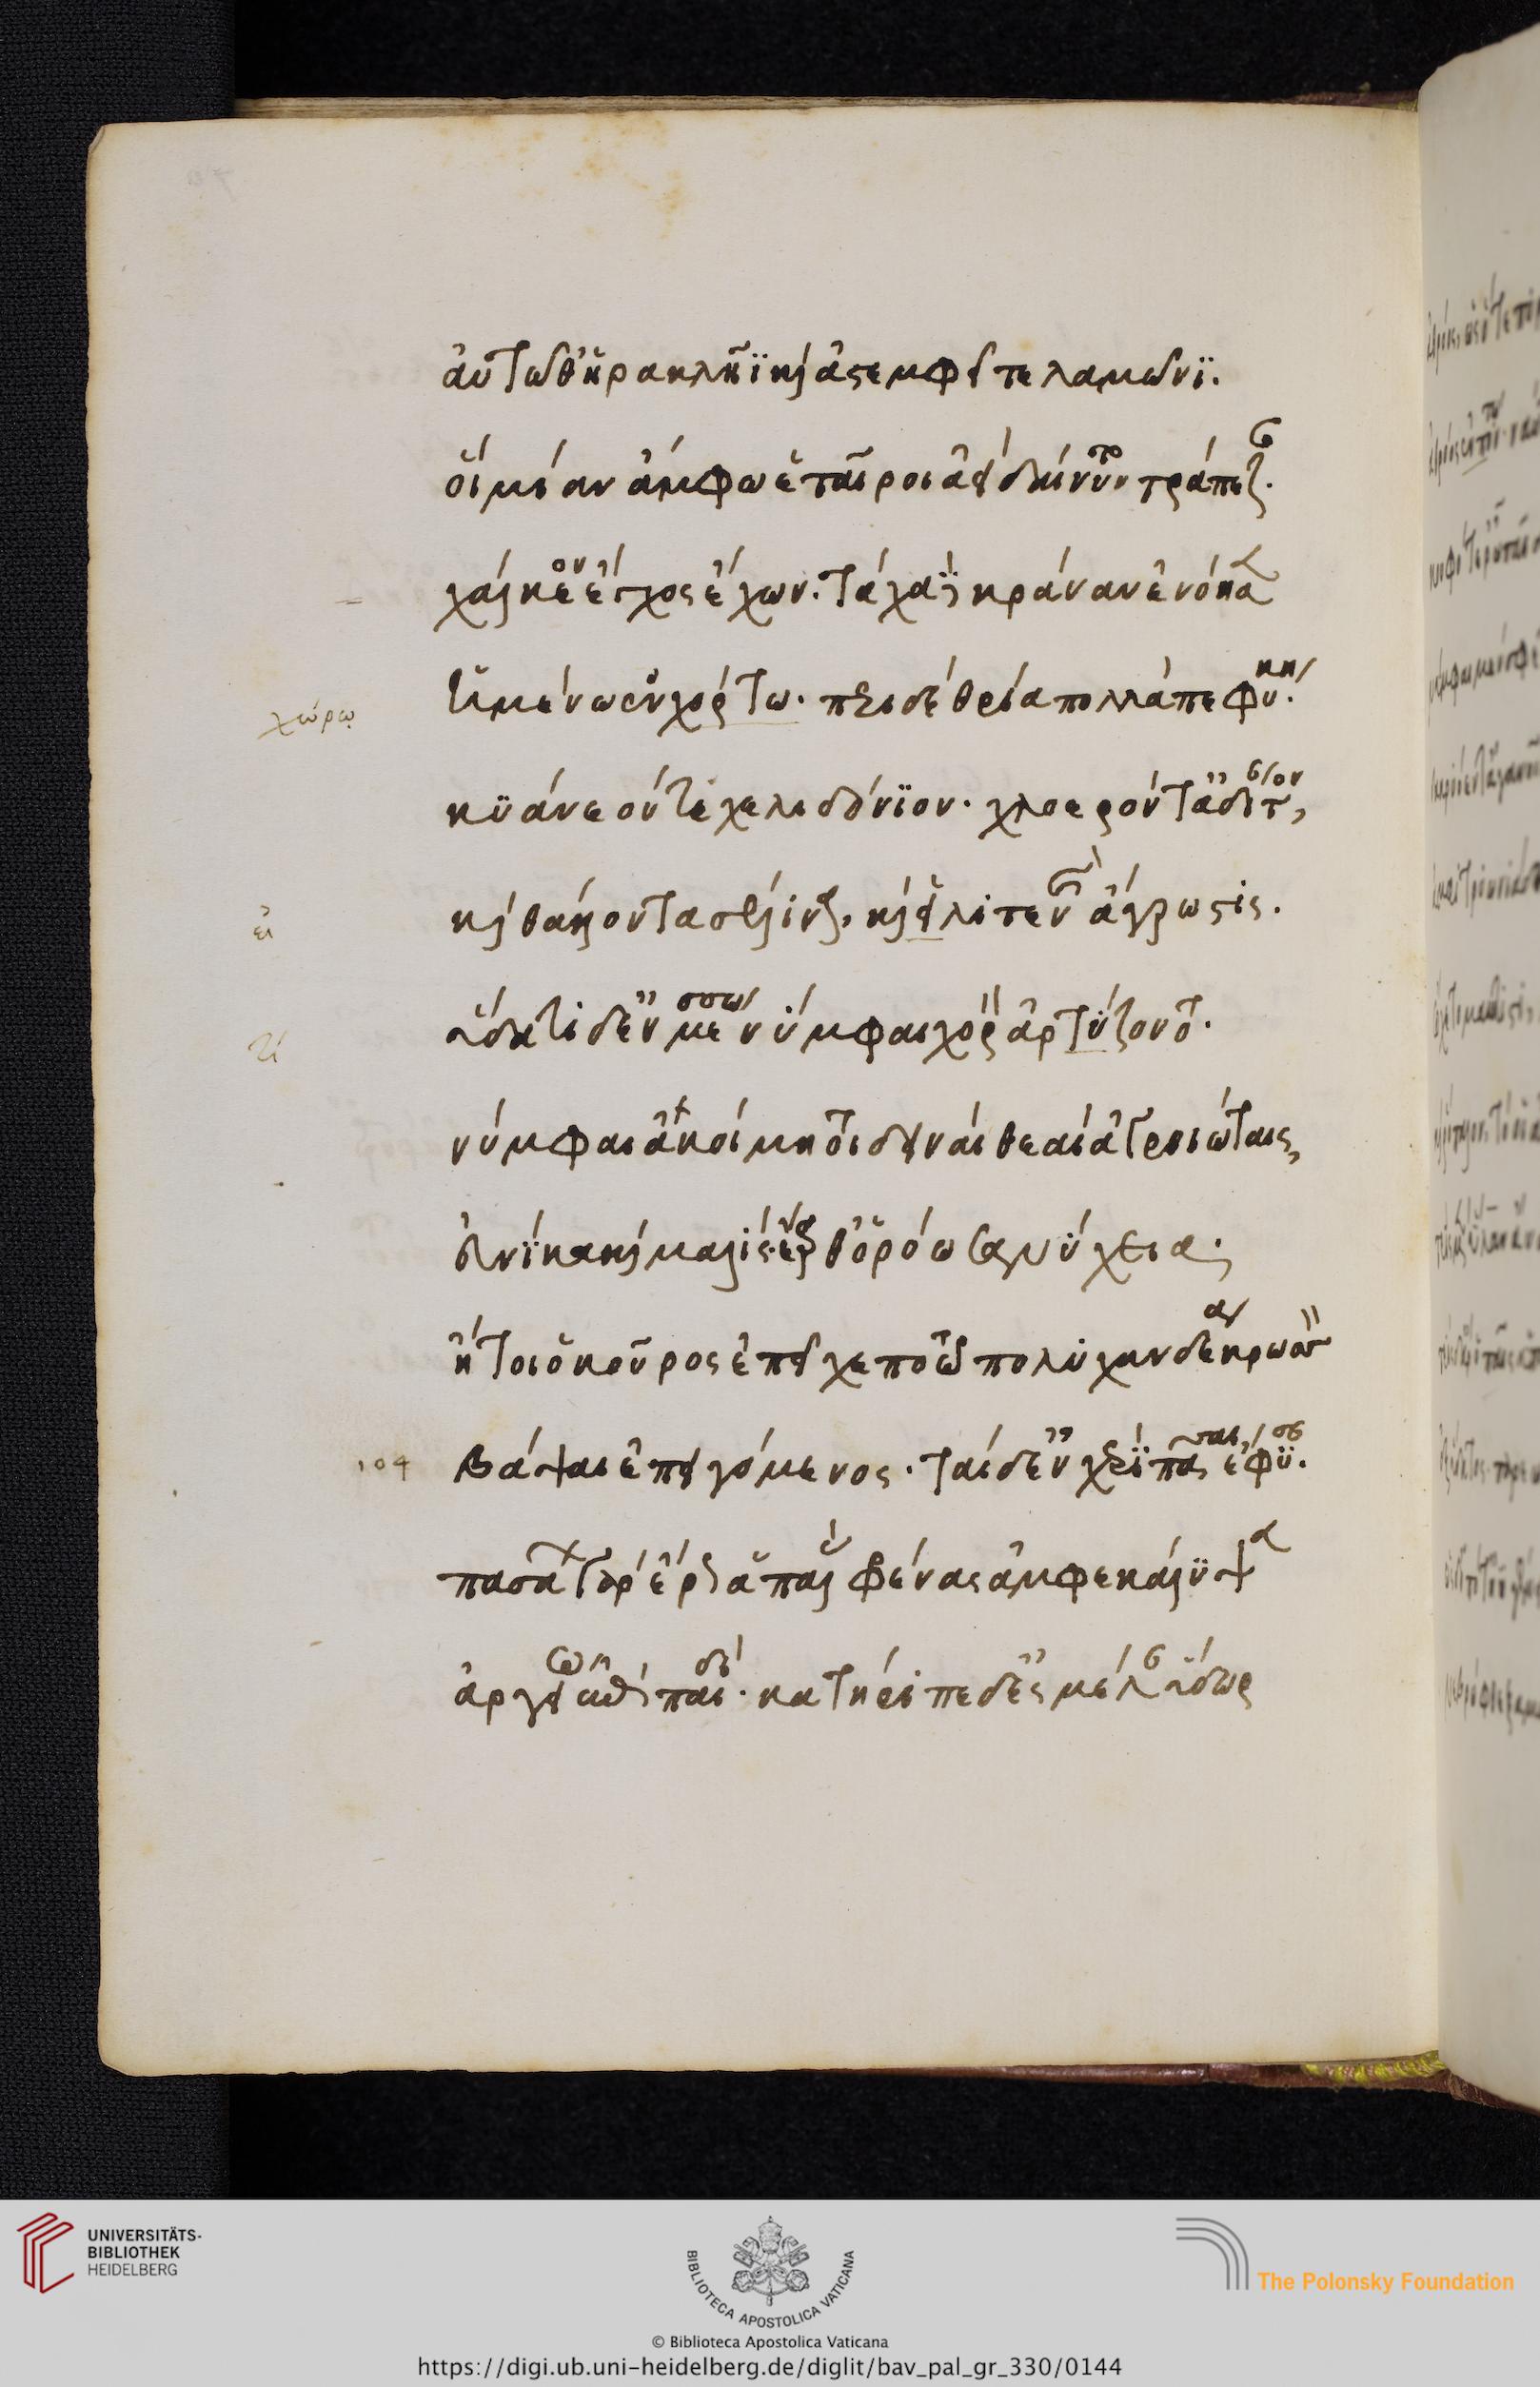 αὐτῶ θ' ἡρακλῆϊ καὶ ἀστεμφεῖ τελαμῶνϊ.
οἳ μίαν ἄμφω ἑταῖροι ἀεὶ δαίνυντο τράπεζαν.
χάλκεον ἔγχος ἔχων. τάχα δὲ κράναν ἐνόησεν
χώρῳ ἡμένω ἐν χόρτω. περὶ δὲ θρία πολλὰ πεφύκει.
κϋάνεόν τε χελιδόνϊον. χλοερόν τ' ἀδίαντον,
εἰ καὶ θάλλοντα σέλινα, καὶ εἰλιτενὴς ἄγρωστις.
τί ὕδατι δ' ἐν μέσσω νύμφαι χορὸν ἀρτύζοντο.
νύμφαι ἀκοίμητοι δειναὶ θεαὶ ἀγροιώταις,
εὐνίκα καὶ μαλὶς ἔαρ θ' ὁρόωσα νύχεια.
ἤτοι ὁ κοῦρος ἐπεῖχε ποτῶ πολυχανδέα κρωσσὸν
104 βάψαι ἐπειγόμενος. ταὶ δ' ἐν χερὶ πᾶσαι ἔφϋσαν.
πασάων γὰρ ἔρως ἁπαλὰς φρένας ἀμφεκάλϋψεν
ἀργείω ἐπὶ παιδί. κατήριπε δ' ἐς μέλαν ὕδωρ
UNIVERSITÄTS-
BIBLIOTHEK
HEIDELBERG
BIBLIOTECA APOSTOLICA VATICANA
The Polonsky Foundation
© Biblioteca Apostolica Vaticana
https://digi.ub.uni-heidelberg.de/diglit/bav_pal_gr_330/0144